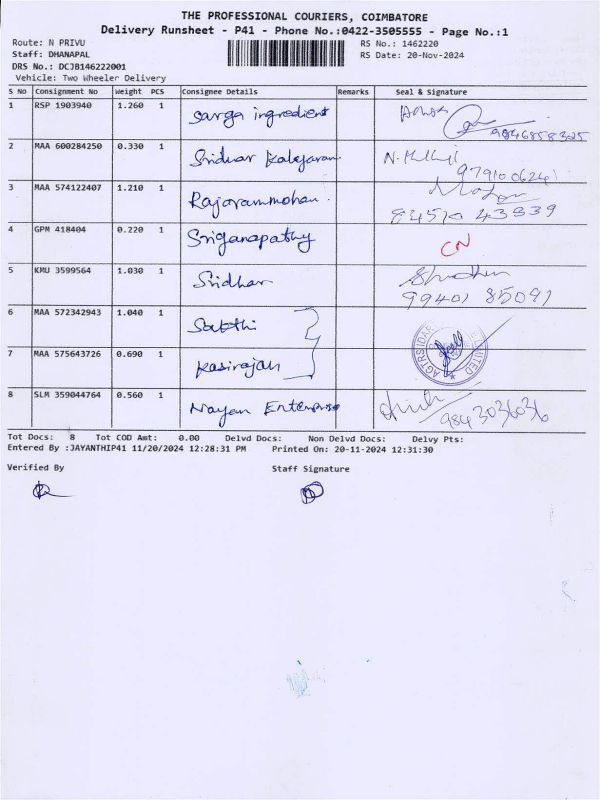 THE PROFESSIONAL COURIERS, COIMBATORE
Delivery Runsheet - P41 - Phone No.:0422-3505555 - Page No.:1
Route: N PRIVU
RS No.: 1462220
Staff: DHANAPAL
RS Date: 20-Nov-2024
DRS No.: DCJB146222001
Vehicle: Two Wheeler Delivery
S No Consignment No Weight PCS Consignee Details Remarks Seal & Signature
1 RSP 1903940 1.260 1 Sarga ingredient
9846858325
2 MAA 600284250 0.330 1 Sridhar Kalajaram
3 MAA 574122407 1.210 1 Rajarammohan.
84510 43339
4 GPM 418404 0.220 1 Sriganapathy CN
5 KMU 3599564 1.030 1 Sridhar
99401 85091
6 MAA 572342943 1.040 1 Sakthi
7 MAA 575643726 0.690 1 Kasirajan
8 SLM 359044764 0.560 1 Nayan Enterprise
9843036036
Tot Docs: 8 Tot COD Amt: 0.00 Delvd Docs: Non Delvd Docs: Delvy Pts:
Entered By :JAYANTHIP41 11/20/2024 12:28:31 PM Printed On: 20-11-2024 12:31:30
Verified By Staff Signature